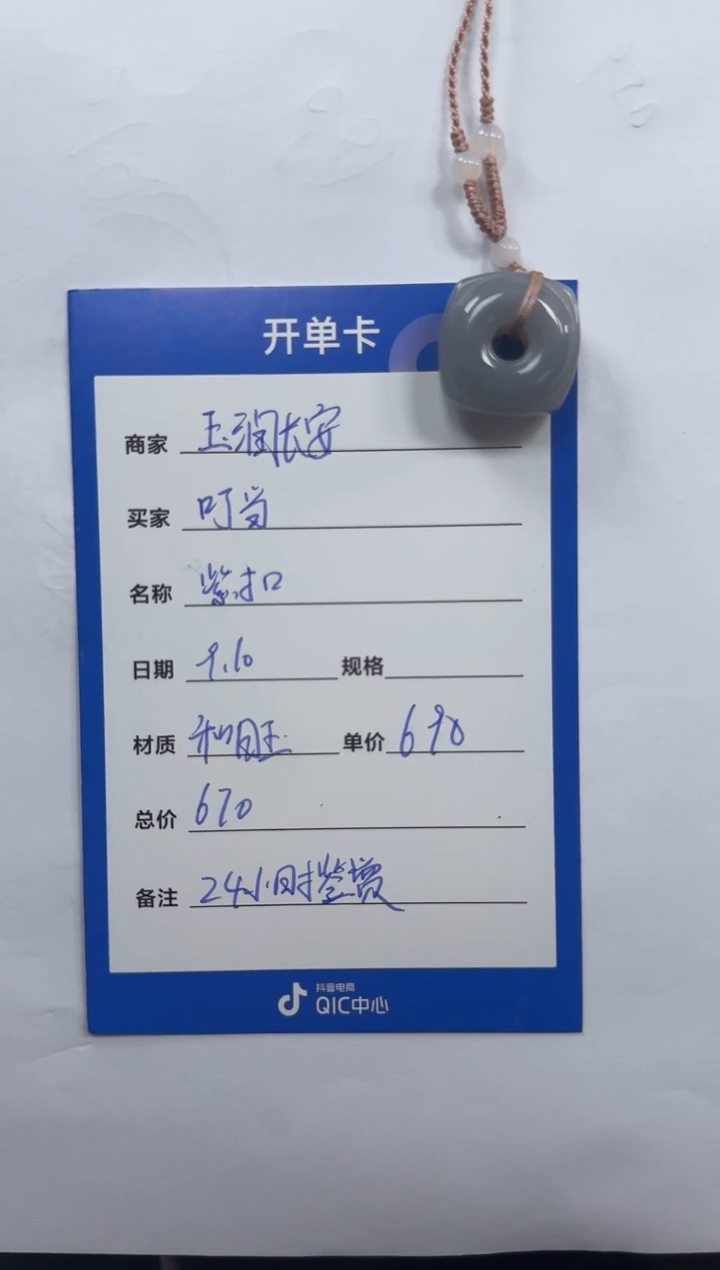 开单卡
商家 玉润长安
买家 叮当
名称 紫扣
日期 9.10 规格
材质 和田玉 单价 690
总价 670
备注 24小时鉴赏
抖音电商
QIC中心